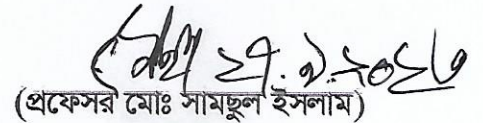 ২১.৯.২০২৩
(প্রফেসর মোঃ সামছুল ইসলাম)